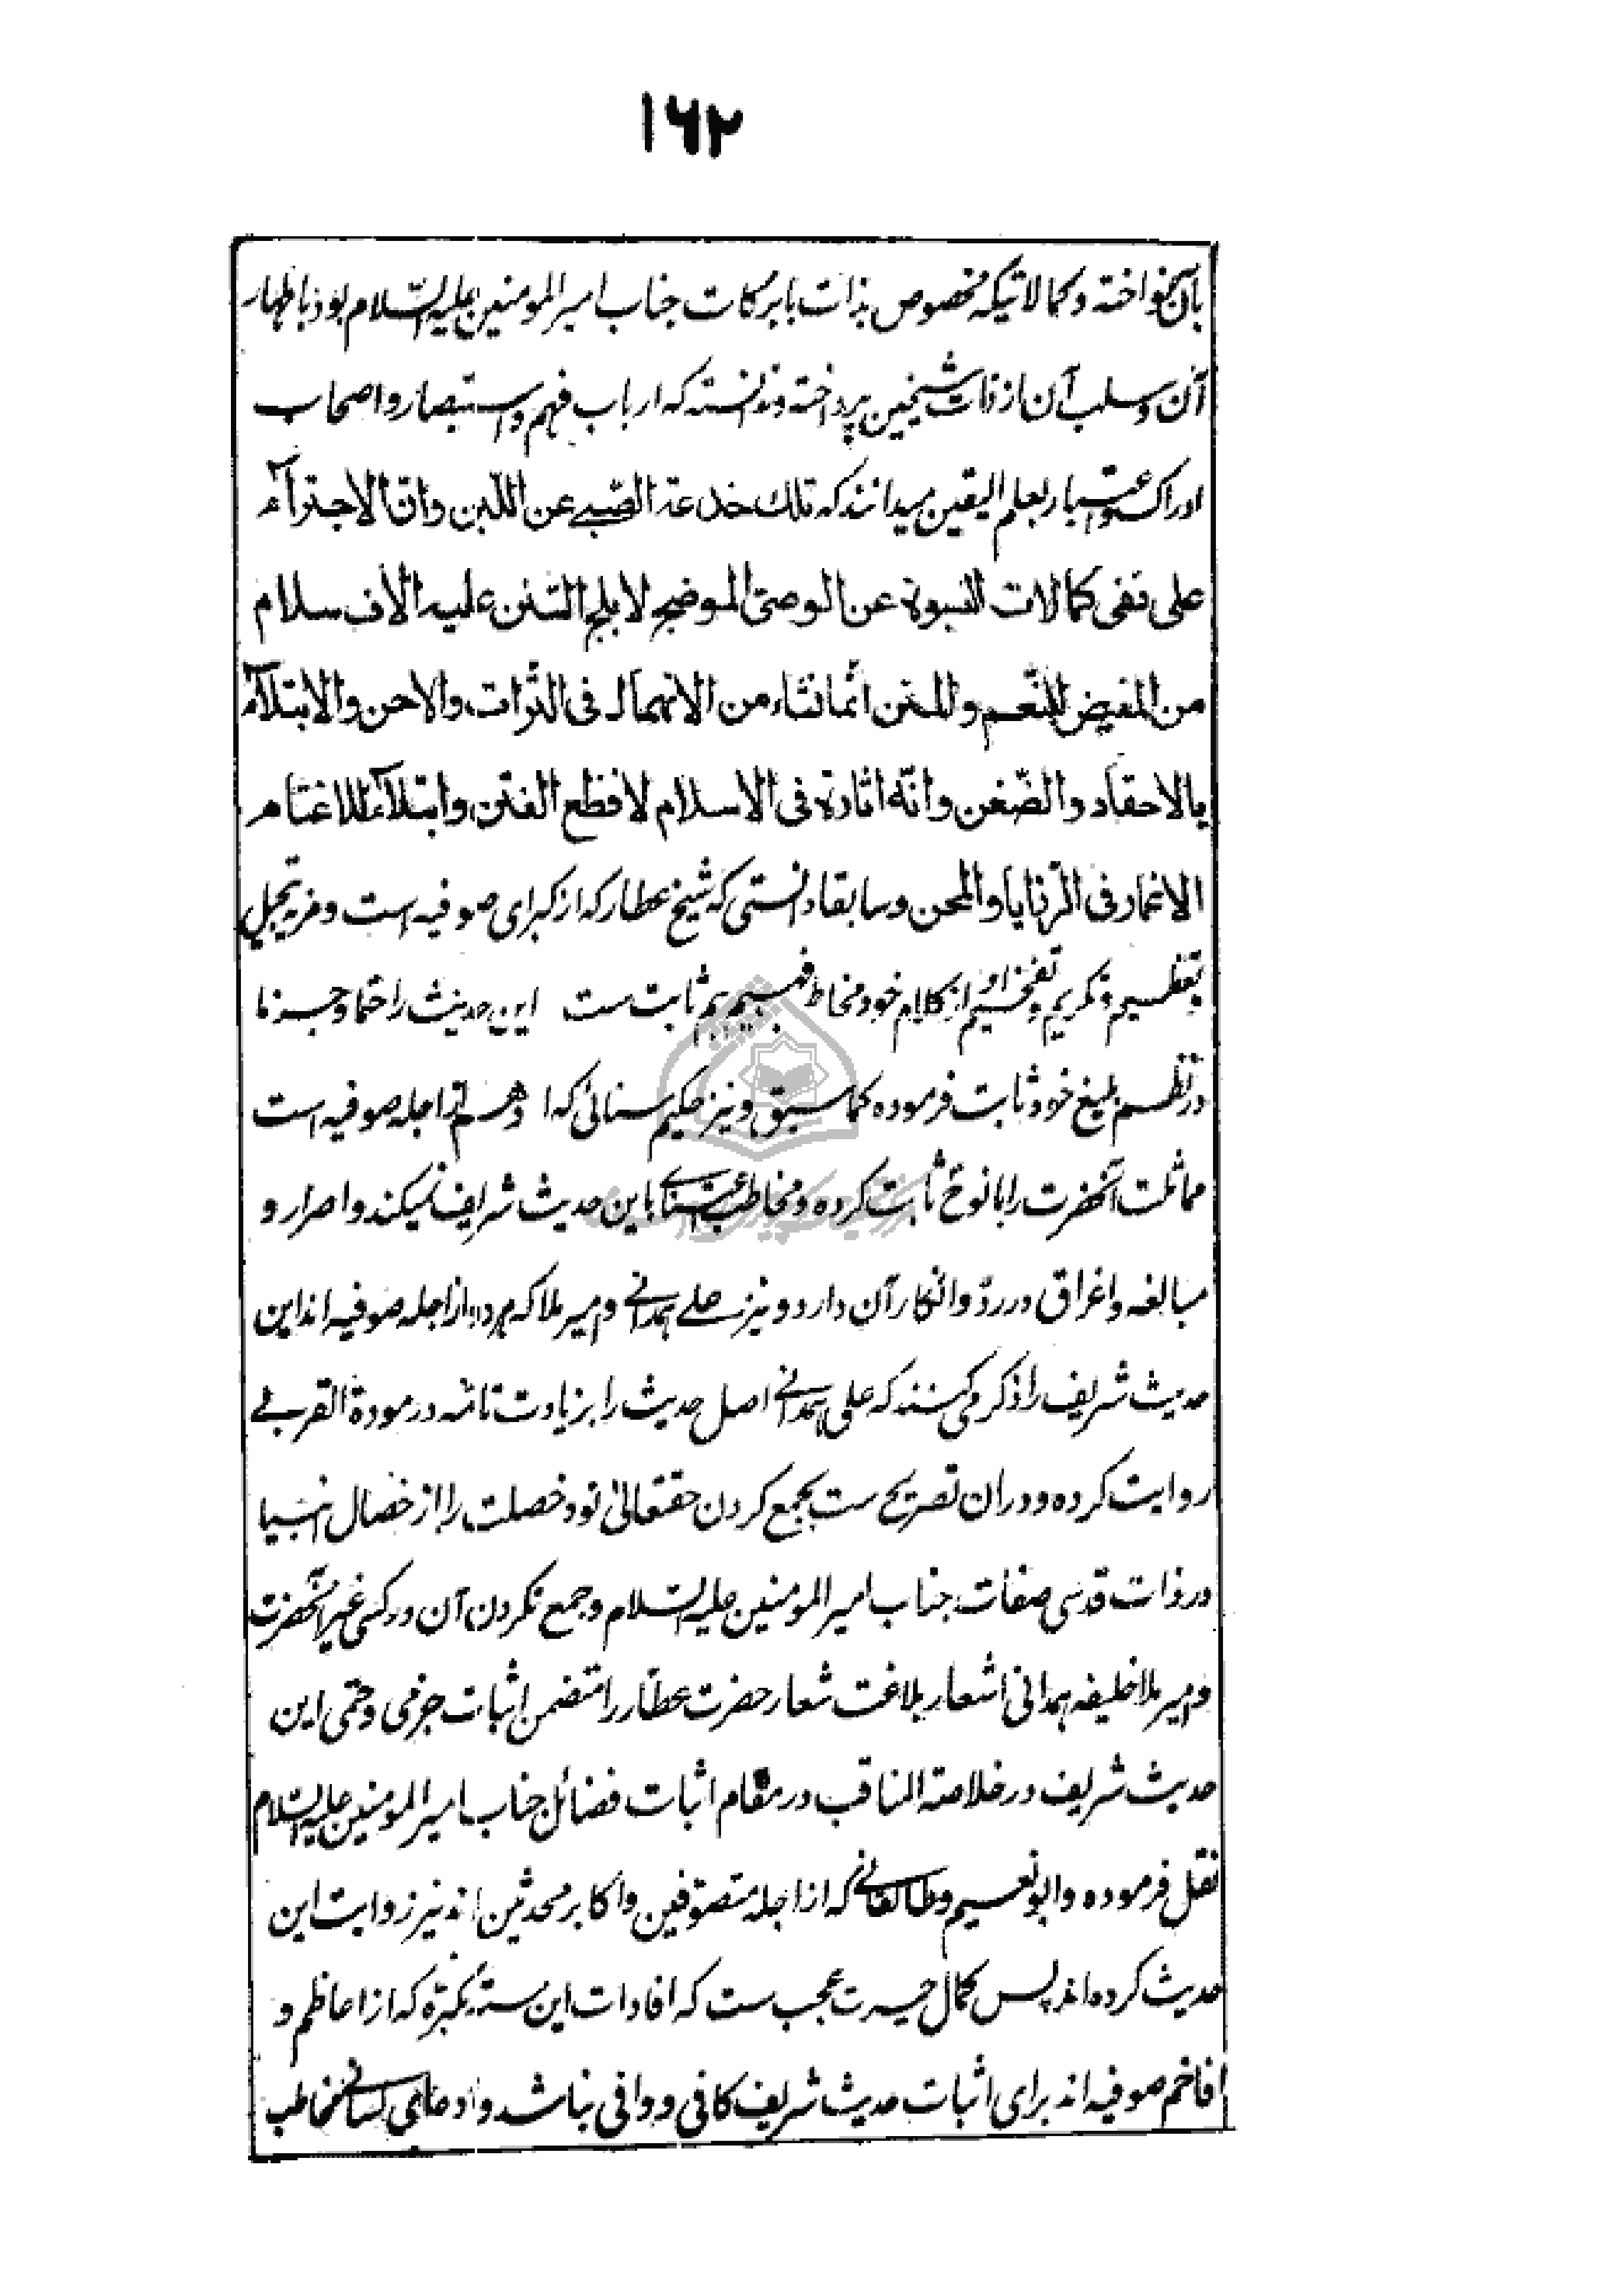 ۱۶۲
بآن نواخته و کمالاتیکه مخصوص بذات بابرکات جناب امیر المومنین علیه السّلام بود باظهار
آن و سلب آن از ذات شیخین پرداخته و ندانسته که ارباب فهم و استبصار و اصحاب
ادراک و اعتبار بعلم الیقین میدانند که تلک خدعة الصّبی عن اللّبن و انّ الاجتراء
علی نفی کمالات النبوة عن الوصیّ الموضح لابلج السّنن علیه الاف سلام
من المفیض للنّعم و المنن انّما نشاء من الانهماک فی التّرات والاحن والابتلاء
بالاحقاد والضّغن وانّه اثارة فی الاسلام لافظع الفتن وابتلاء للاغتام
الاغمار فی الرّزایا والمحن و سابقا دانستی که شیخ عطار که از کبرای صوفیه است و مزید تبجیل
و تعظیم و تکریم و تفخیم او از کلام خود مخاطب فهیم هم ثابت ست این حدیث را حتما و جزما
در نظم بلیغ خود ثابت فرموده کما سبق و نیز حکیم سنائی که او هم از اجله صوفیه است
مماثلت آنحضرت را با نوح ثابت کرده و مخاطب اعتنای باین حدیث شریف نمیکند و اصرار و
مبالغه و اغراق در ردّ و انکار آن دارد و نیز علی همدانی و میر ملا که هر دو از اجله صوفیه اند این
حدیث شریف را ذکر می کنند که علی همدانی اصل حدیث را بزیادت تامّه در مودة القربی
روایت کرده و دران تصریح ست بجمع کردن حقتعالی نود خصلت را از خصال انبیا
در ذات قدسی صفات جناب امیر المومنین علیه السلام و جمع نکردن آن در کسی غیر آنحضرت
و میر ملا خلیفه همدانی اشعار بلاغت شعار حضرت عطّار را متضمن اثبات جزمی و حتمی این
حدیث شریف در خلاصة المناقب در مقام اثبات فضائل جناب امیر المومنین علیه السلام
نقل فرموده و ابو نعیم و طالقانی که از اجله متصوّفین و اکابر محدثین اند نیز روایت این
حدیث کرده اند پس کمال حیرت و عجب ست که افادات این ستّهٔ مکبّره که از اعاظم و
افاخم صوفیه اند برای اثبات حدیث شریف کافی و وافی نباشد و ادعای لسانی مخاطب